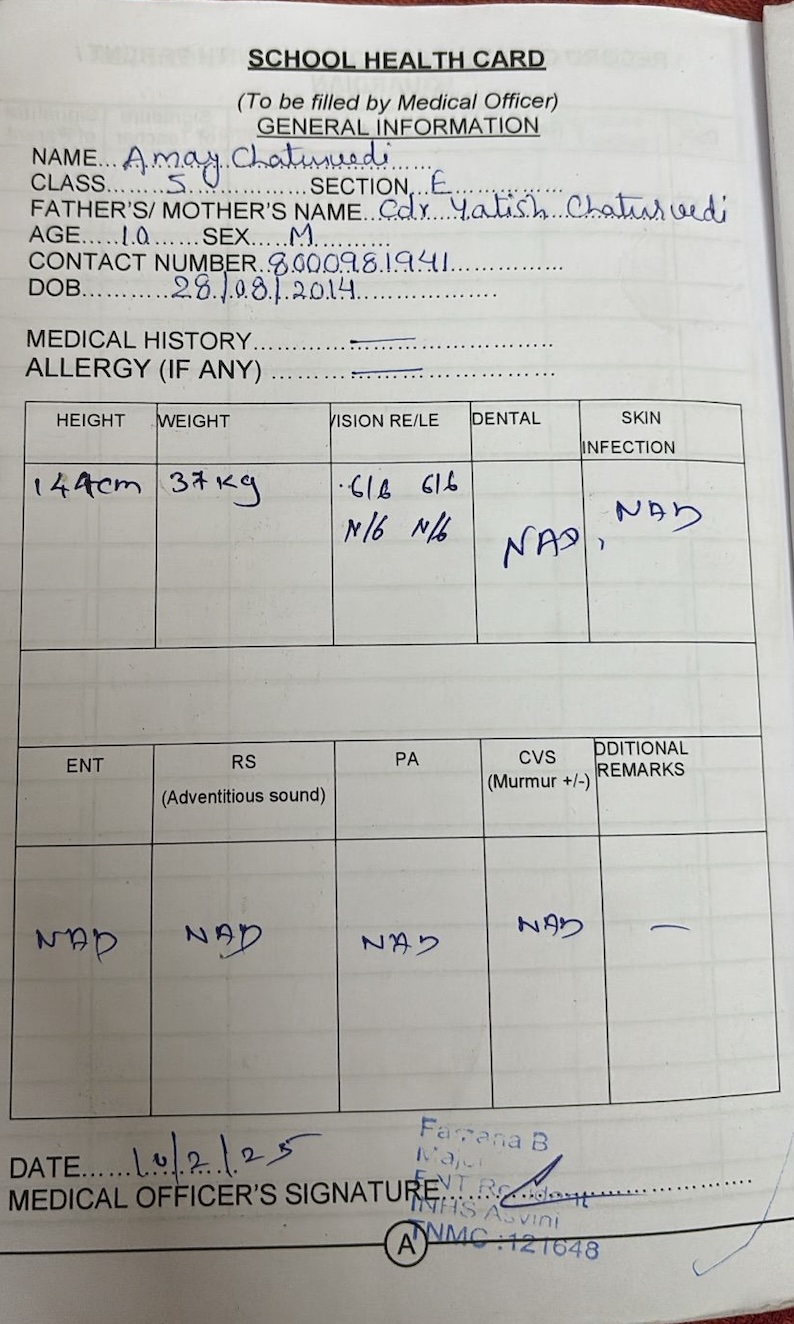 SCHOOL HEALTH CARD
(To be filled by Medical Officer)
GENERAL INFORMATION
NAME... Amay Chaturvedi
CLASS....... 5 ............ SECTION. E ..............
FATHER'S/ MOTHER'S NAME.. Cdr Yatish Chaturvedi
AGE..... 10 ...... SEX..... M ..........
CONTACT NUMBER.. 8000981941 ..............
DOB........... 28/08/2014 .................
MEDICAL HISTORY............ — ....................
ALLERGY (IF ANY) ........... — ....................
HEIGHT WEIGHT VISION RE/LE DENTAL SKIN
INFECTION
144cm 37 Kg 6/6 6/6
N/6 N/6 NAD, NAD
ENT RS PA CVS DDITIONAL
(Adventitious sound) (Murmur +/-) REMARKS
NAD NAD NAD NAD —
DATE...... 10/2/25
MEDICAL OFFICER'S SIGNATURE..............................
Farzana B
Major
ENT Resident
INHS Asvini
TNMC :121648
A